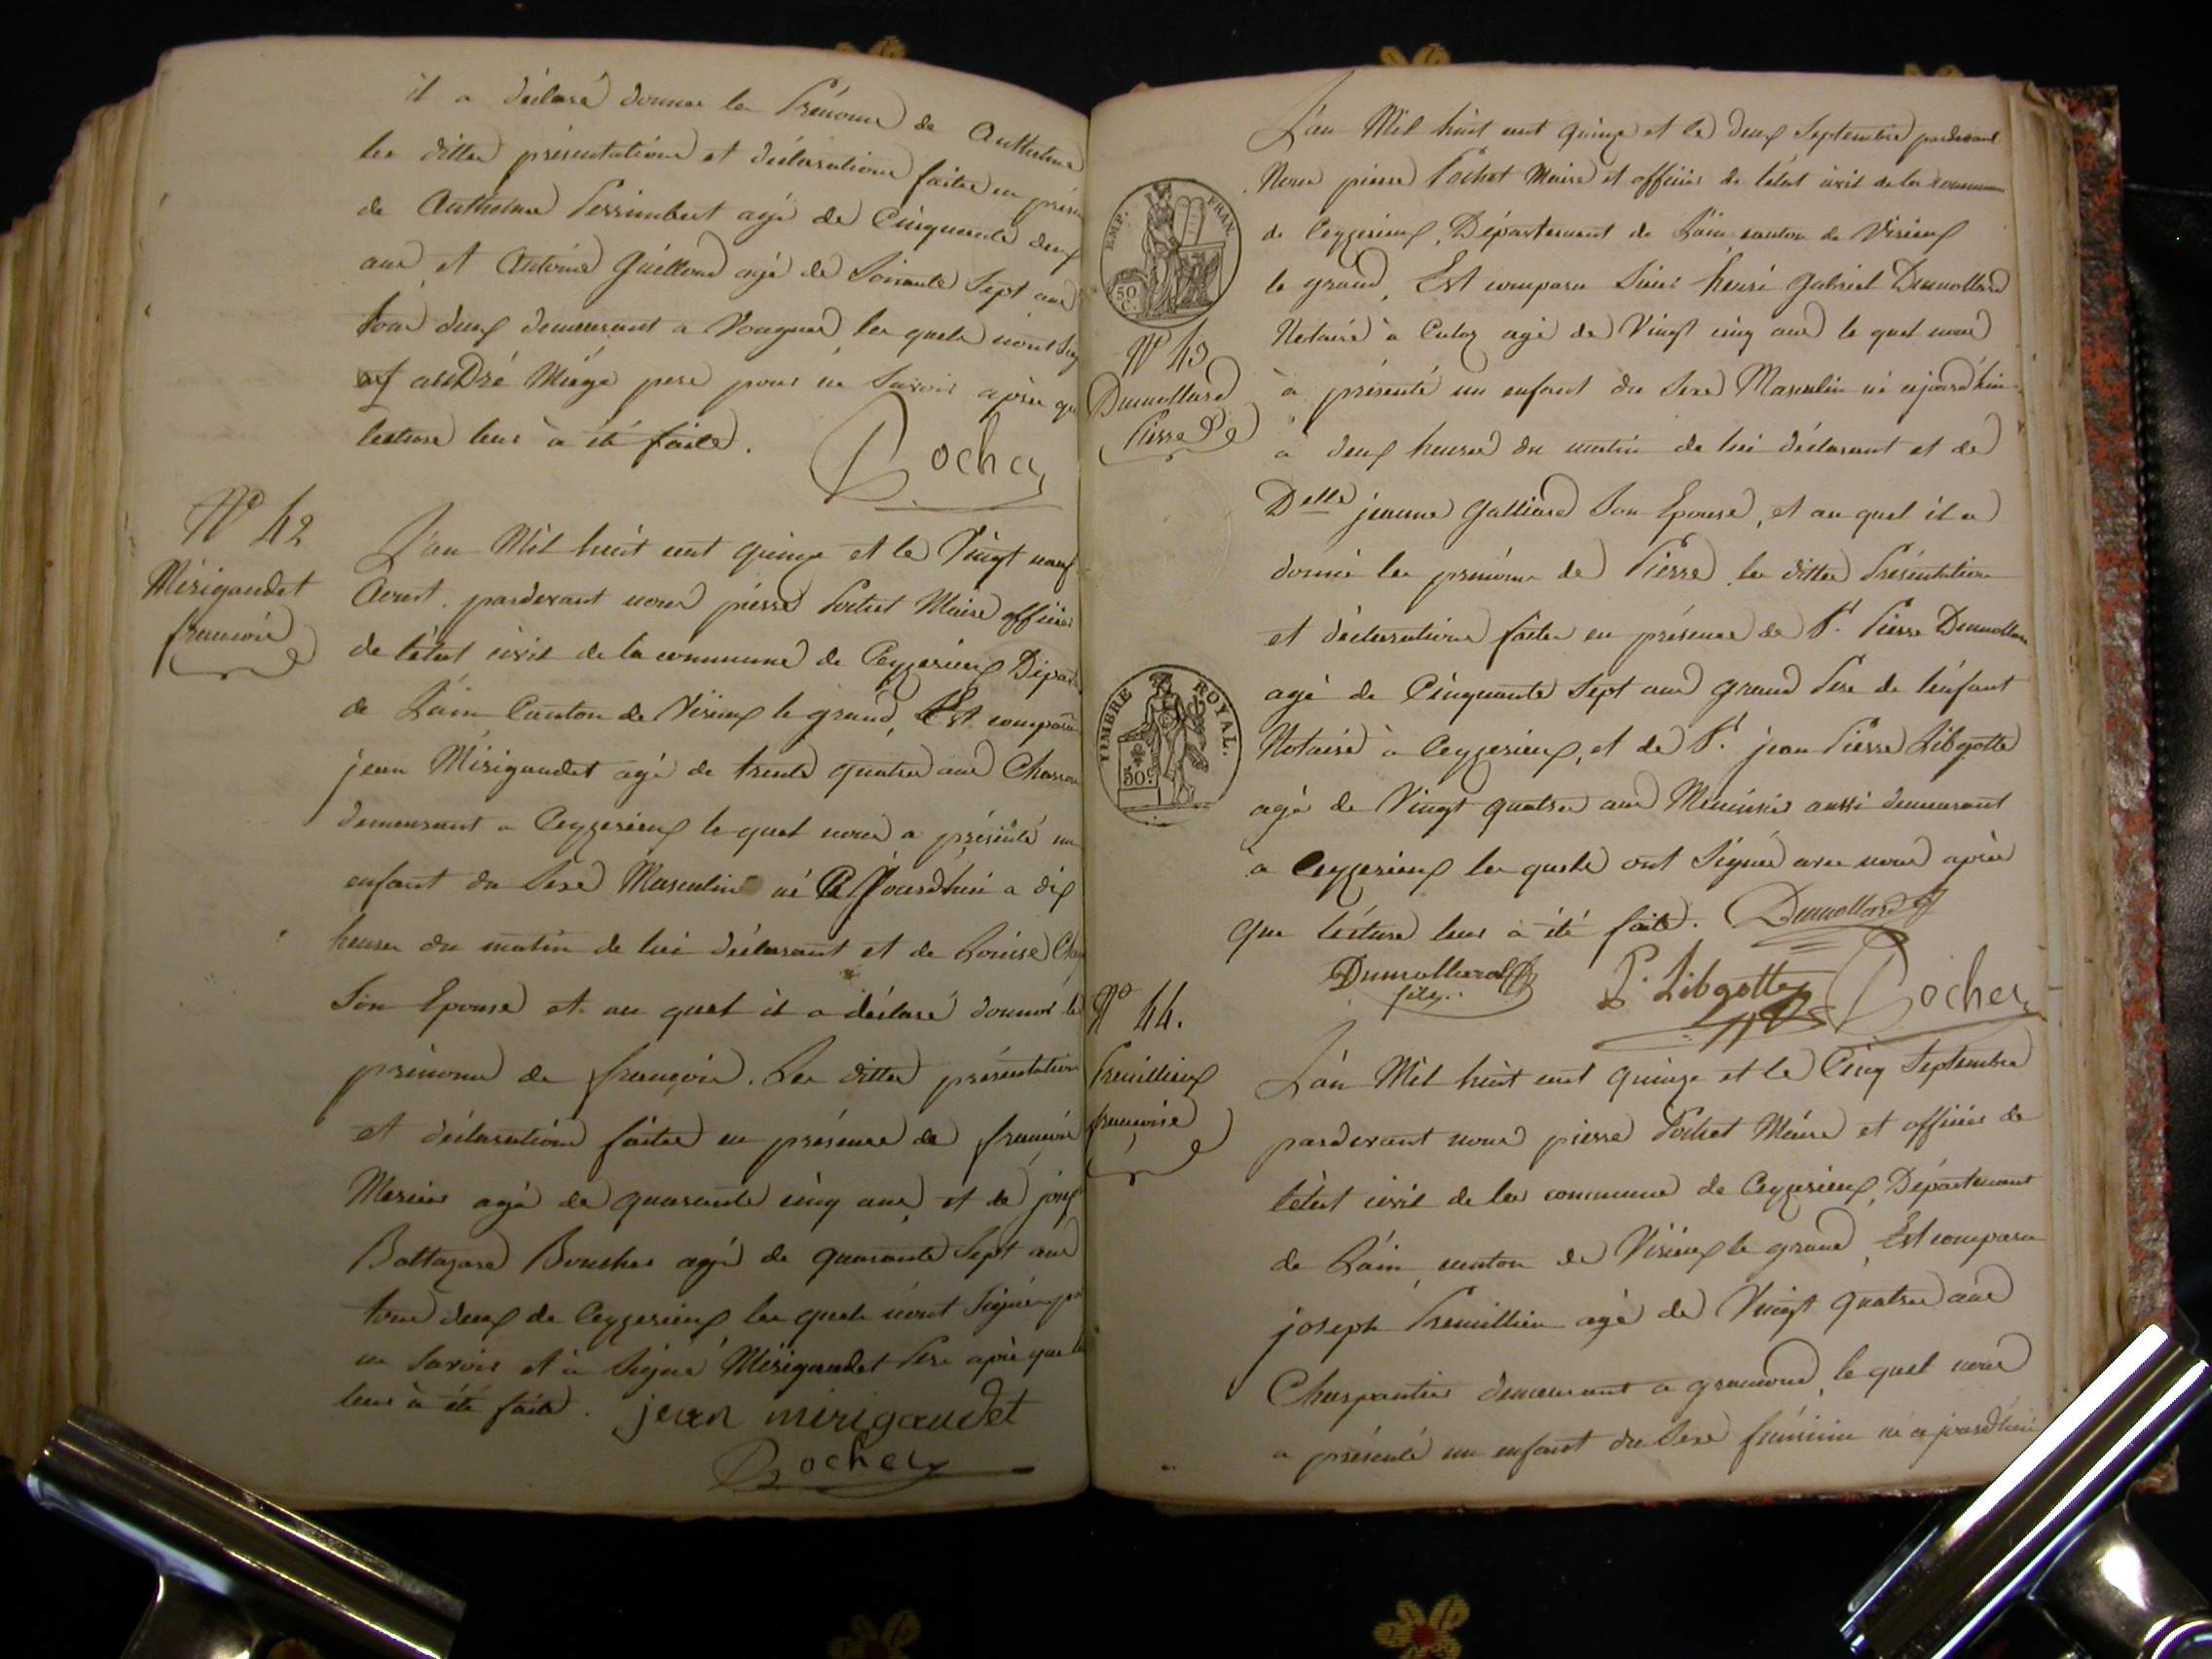 il a déclaré donner les Prénoms de Anthelme
les dittes présentations et déclarations faites en présen
de Anthelme Perrimbert agé de Cinquante deux
ans et Antoine Guillond agé de Soixante Sept ans
tous deux demeurant a Vongnes les quels n'ont Sig
andré Miège pere pour ne Savoir après que
lecture leur à été faite.
Pochet
N° 42
Mérigaudet
francois
L'an Mil huit cent quinze et le Vingt neuf
Aoust pardevant nous pierre Pochet Maire officier
de l'état civil de la commune de Ceyzerieux Dépar
de L'ain Canton de Virieux le grand, Est comparu
jean Mérigaudet agé de trente quatre ans Charron
demeurant a Ceyzerieux le quel nous a présenté un
enfant du Sexe Masculin né Ce Jourd'hui a dix
heures du matin de lui déclarant et de Louise
Son Epouse et au quel il a déclaré donner les
prénoms de françois. Les dittes présentation
et déclarations faites en présence de francois
Mercier agé de quarante cinq ans et de
Baltazard Boucher agé de quarante Sept ans
tous deux de Ceyzerieux les quels n'ont Signé p
ne Savoir et à Signé Mérigaudet Pere après que l
leur à été faite.
jean mirigaudet
Pochet
L'an Mil huit cent quinze et le deux Septembre pardevant
Nous pierre Pochet Maire et officier de l'état civil de la commune
de Ceyzerieux, Département de L'ain canton de Virieux
le grand, Est comparu Sieur henri Gabriel Dumollard
Notaire à Culoz agé de Vingt cinq ans le quel nous
à présenté un enfant du Sexe Masculin né ajourd'hui
à deux heures du matin de lui déclarant et de
Delle jeanne Galliard Son Epouse, et au quel il a
donné les prénoms de Pierre les dittes Présentation
et déclarations faites en présence de Sr. Pierre Dumollard
agé de Cinquante Sept ans grand Pere de l'enfant
Notaire à Ceyzerieux, et de Sr. jean Pierre Libgotte
agé de Vingt quatre ans Menuisier aussi demeurant
à Ceyzerieux les quels ont Signés avec nous après
que lecture leur à été faite. Dumollard
Dumollard
fils
P. Libgotte
Pochet
EMP. FRAN.
50 C.
N° 43
Dumollard
Pierre
TIMBRE ROYAL.
50 c
N° 44.
Premillieux
francoise
L'an Mil huit cent quinze et le Cinq Septembre
pardevant nous pierre Pochet Maire et officier de
l'état civil de la commune de Ceyzerieux, Département
de L'ain, canton de Virieux le grand, Est comparu
joseph Premillieu agé de Vingt quatre ans
Charpantier demeurant a grammond, le quel nous
a présenté un enfant du Sexe féminin né ajourd'hui